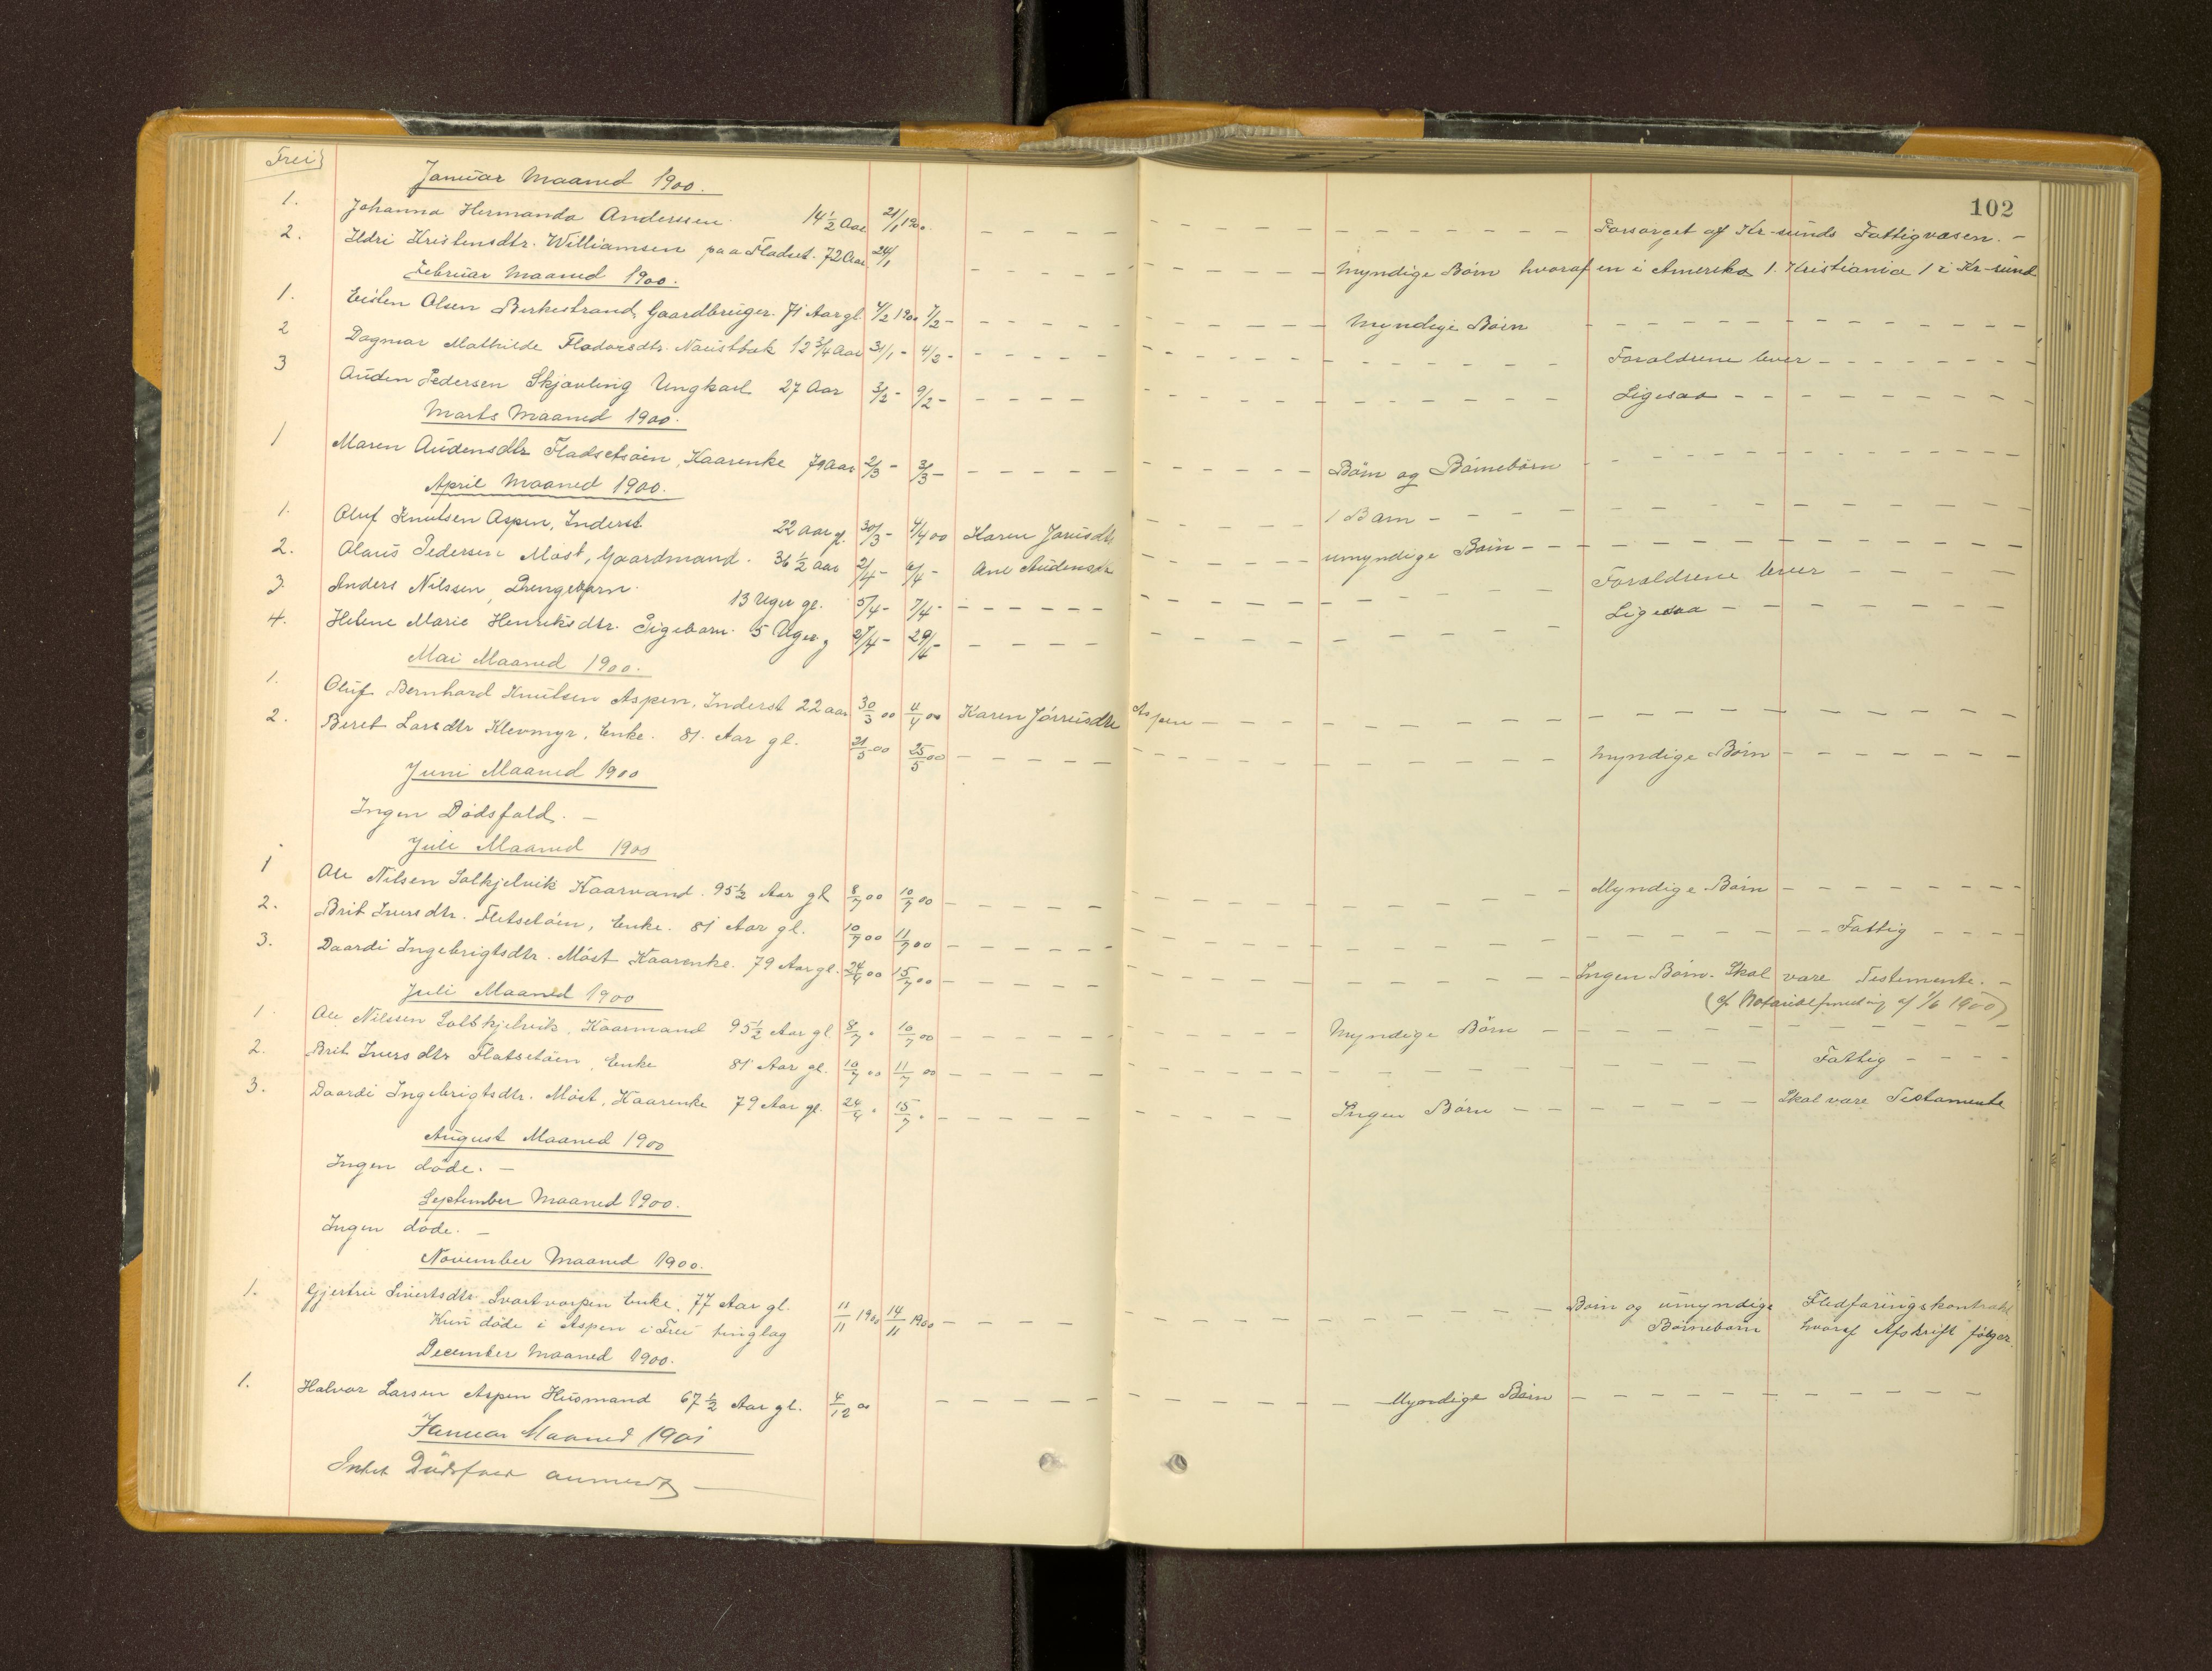 Frei
102
Januar Maaned 1900.
1. Johanna Hermanda Anderssen 14 1/2 Aar 21/1 1900. Forsørget af Kr-sunds Fattigvæsen. -
2. Ildri Kristensdtr. Williamsen paa Fladset. 72 Aar 24/1 Myndige Börn hvoraf en i Amerika 1. Kristiania 1 i Kr-sund
Februar Maaned 1900.
1. Olsen Birkestrand, Gaardbruger. 71 Aar gl. 4/2 1900 7/2 - Myndige Börn
2 Dagmar Mathilde Naustbak 12 3/4 Aar 31/1 - 4/2 - Forældrene lever
3 Auden Pedersen Skjævling Ungkarl 27 Aar 3/2 - 9/2 - Ligesaa
Marts Maaned 1900.
1 Maren Audensdtr Fladsetøien, Kaarenke 79 Aar 2/3 - 3/3 - Börn og Börnebörn
April Maaned 1900.
1. Oluf Knutsen Aspen, Inderst 22 Aar g. 30/3 - 4/4 00 Karen 1 Barn
2. Olaus Pedersen Møst, Gaardmand. 36 1/2 Aar 2/4 - /4 - Ane Audensdtr umyndige Børn
3. Anders Nilssen, Drengebarn. 13 Uger gl. 5/4 - 7/4 - Forældrene lever
4. Helene Marie Henriksdtr. Pigebarn. 5 Uger g 27/4 - 29/4 - Ligesaa
Mai Maaned 1900.
1. Oluf Bernhard Knutsen Aspen, Inderst 22 aar 30/3 00 4/4 00 Karen Aspen
2. Beret Larsdtr Klevmyr, Enke. 81. Aar gl. 21/5 00 25/5 00 Myndige Börn
Juni Maaned 1900
Ingen Dødsfald. -
Juli Maaned 1900
1 Ole Nilsen Solkjelvik Kaarmand. 95 1/2 Aar gl 8/7 00 10/7 00 Myndige Börn
2. Brit Iversdtr. Fletsetøien, Enke. 81 Aar gl. 10/7 00 11/7 00 Fattig
3. Daardi Ingebrigtsdtr. Møst Kaarenke. 79 Aar gl. 24/4 00 15/7 00 Ingen Børn. Skal være Testimente. -
(cf Notarialforretning af 1/6 1900)
Juli Maaned 1900
1. Ole Nilssen Solskjelvik, Kaarmand 95 1/2 Aar gl 8/7 " 10/7 00 Myndige Börn
2. Brit Iversdtr Flatsetøien, Enke 81 Aar gl. 10/7 00 11/7 00 Fattig
3. Daardi Ingebrigtsdtr. Møst, Kaarenke 79 Aar gl. 24/4 " 15/7 " Ingen Børn Skal være Testamente
August Maaned 1900
Ingen døde. -
September Maaned 1900.
Ingen døde. -
November Maaned 1900.
1. Gjertru Sivertsdtr. Svartvorpen Enke, 77 Aar gl. 11/11 1900 14/11 1900 Børn og umyndige Fledføringskontrakt
Hun døde i Aspen i Frei tinglag Börnebørn hvoraf Afskrift følger.
December Maaned 1900.
1. Halvor Larsen Aspen Husmand 67 1/2 Aar gl. 4/12 00 Myndige Børn
Januar Maaned 1901
Intet Dødsfald anmeldt